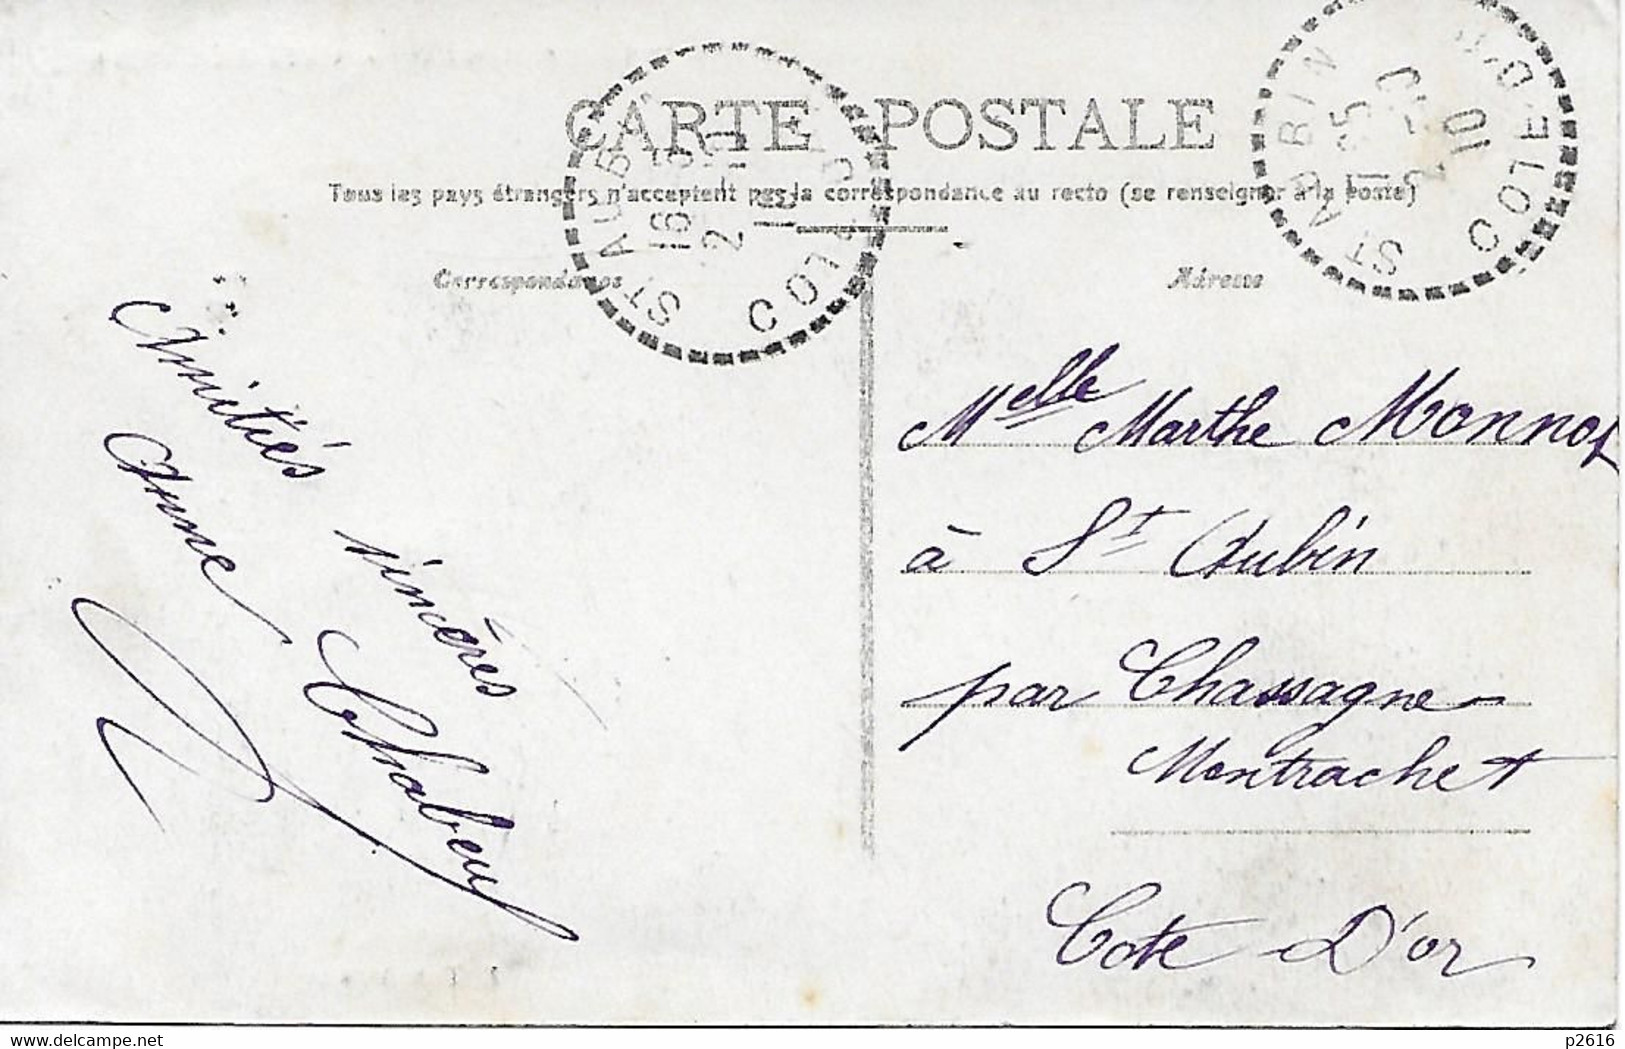 CARTE POSTALE
Tous les pays étrangers n'acceptent pas la correspondance au recto (se renseigner à la poste)
Correspondance
Adresse
ST AUBIN
16
2
10
ST AUBIN
2
10
CÔTE-D'OR
Amitiés sincères
Anne Chabeuy
Melle Marthe Monnot
à St Aubin
par Chassagne
Montrachet
Cote D'or
delcampe.net
p2616